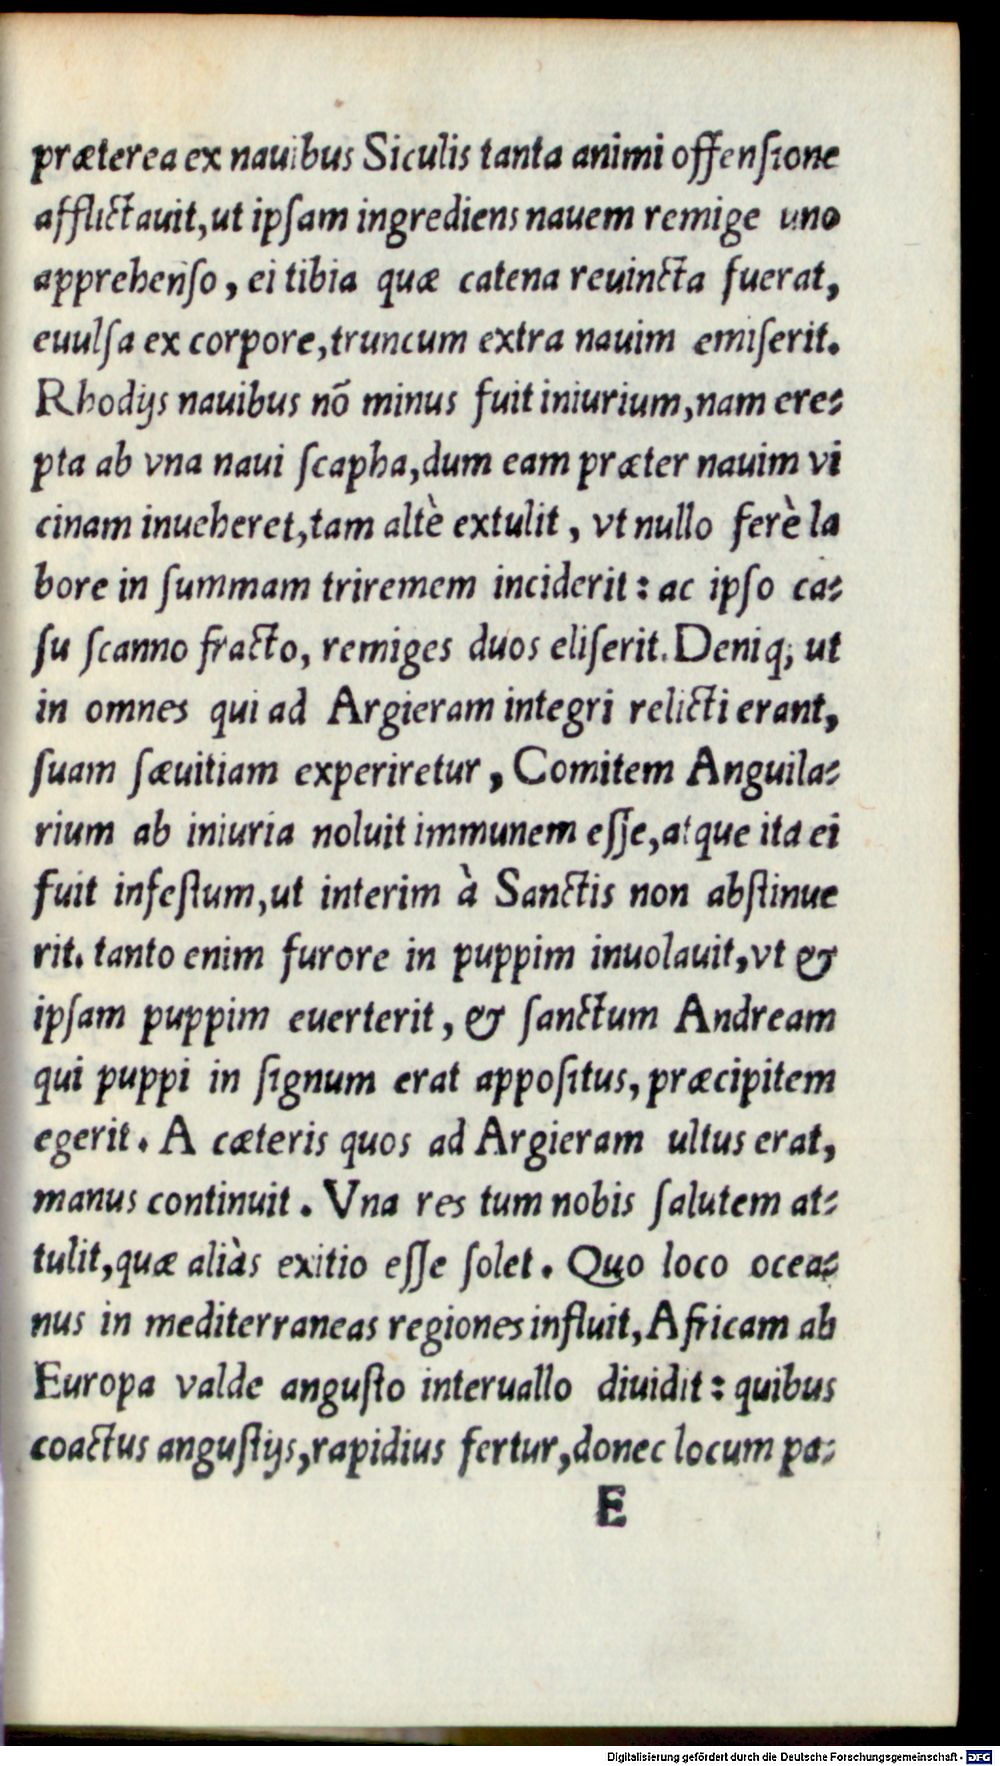 præterea ex nauibus Siculis tanta animi offenſione
afflictauit, ut ipſam ingrediens nauem remige uno
apprehenſo, ei tibia quæ catena reuincta fuerat,
euulſa ex corpore, truncum extra nauim emiſerit.
Rhodijs nauibus nõ minus fuit iniurium, nam ere-
pta ab vna naui ſcapha, dum eam præter nauim vi
cinam inueheret, tam altè extulit, vt nullo ferè la
bore in ſummam triremem inciderit: ac ipſo ca-
ſu ſcanno fracto, remiges duos eliſerit. Deniq; ut
in omnes qui ad Argieram integri relicti erant,
ſuam ſæuitiam experiretur, Comitem Anguila-
rium ab iniuria noluit immunem eſſe, atque ita ei
fuit infeſtum, ut interim à Sanctis non abſtinue
rit. tanto enim furore in puppim inuolauit, vt &
ipſam puppim euerterit, & ſanctum Andream
qui puppi in ſignum erat appoſitus, præcipitem
egerit. A cæteris quos ad Argieram ultus erat,
manus continuit. Vna res tum nobis ſalutem at-
tulit, quæ aliàs exitio eſſe ſolet. Quo loco ocea-
nus in mediterraneas regiones influit, Africam ab
Europa valde anguſto interuallo diuidit: quibus
coactus anguſtijs, rapidius fertur, donec locum pa-
E
Digitalisierung gefördert durch die Deutsche Forschungsgemeinschaft - DFG